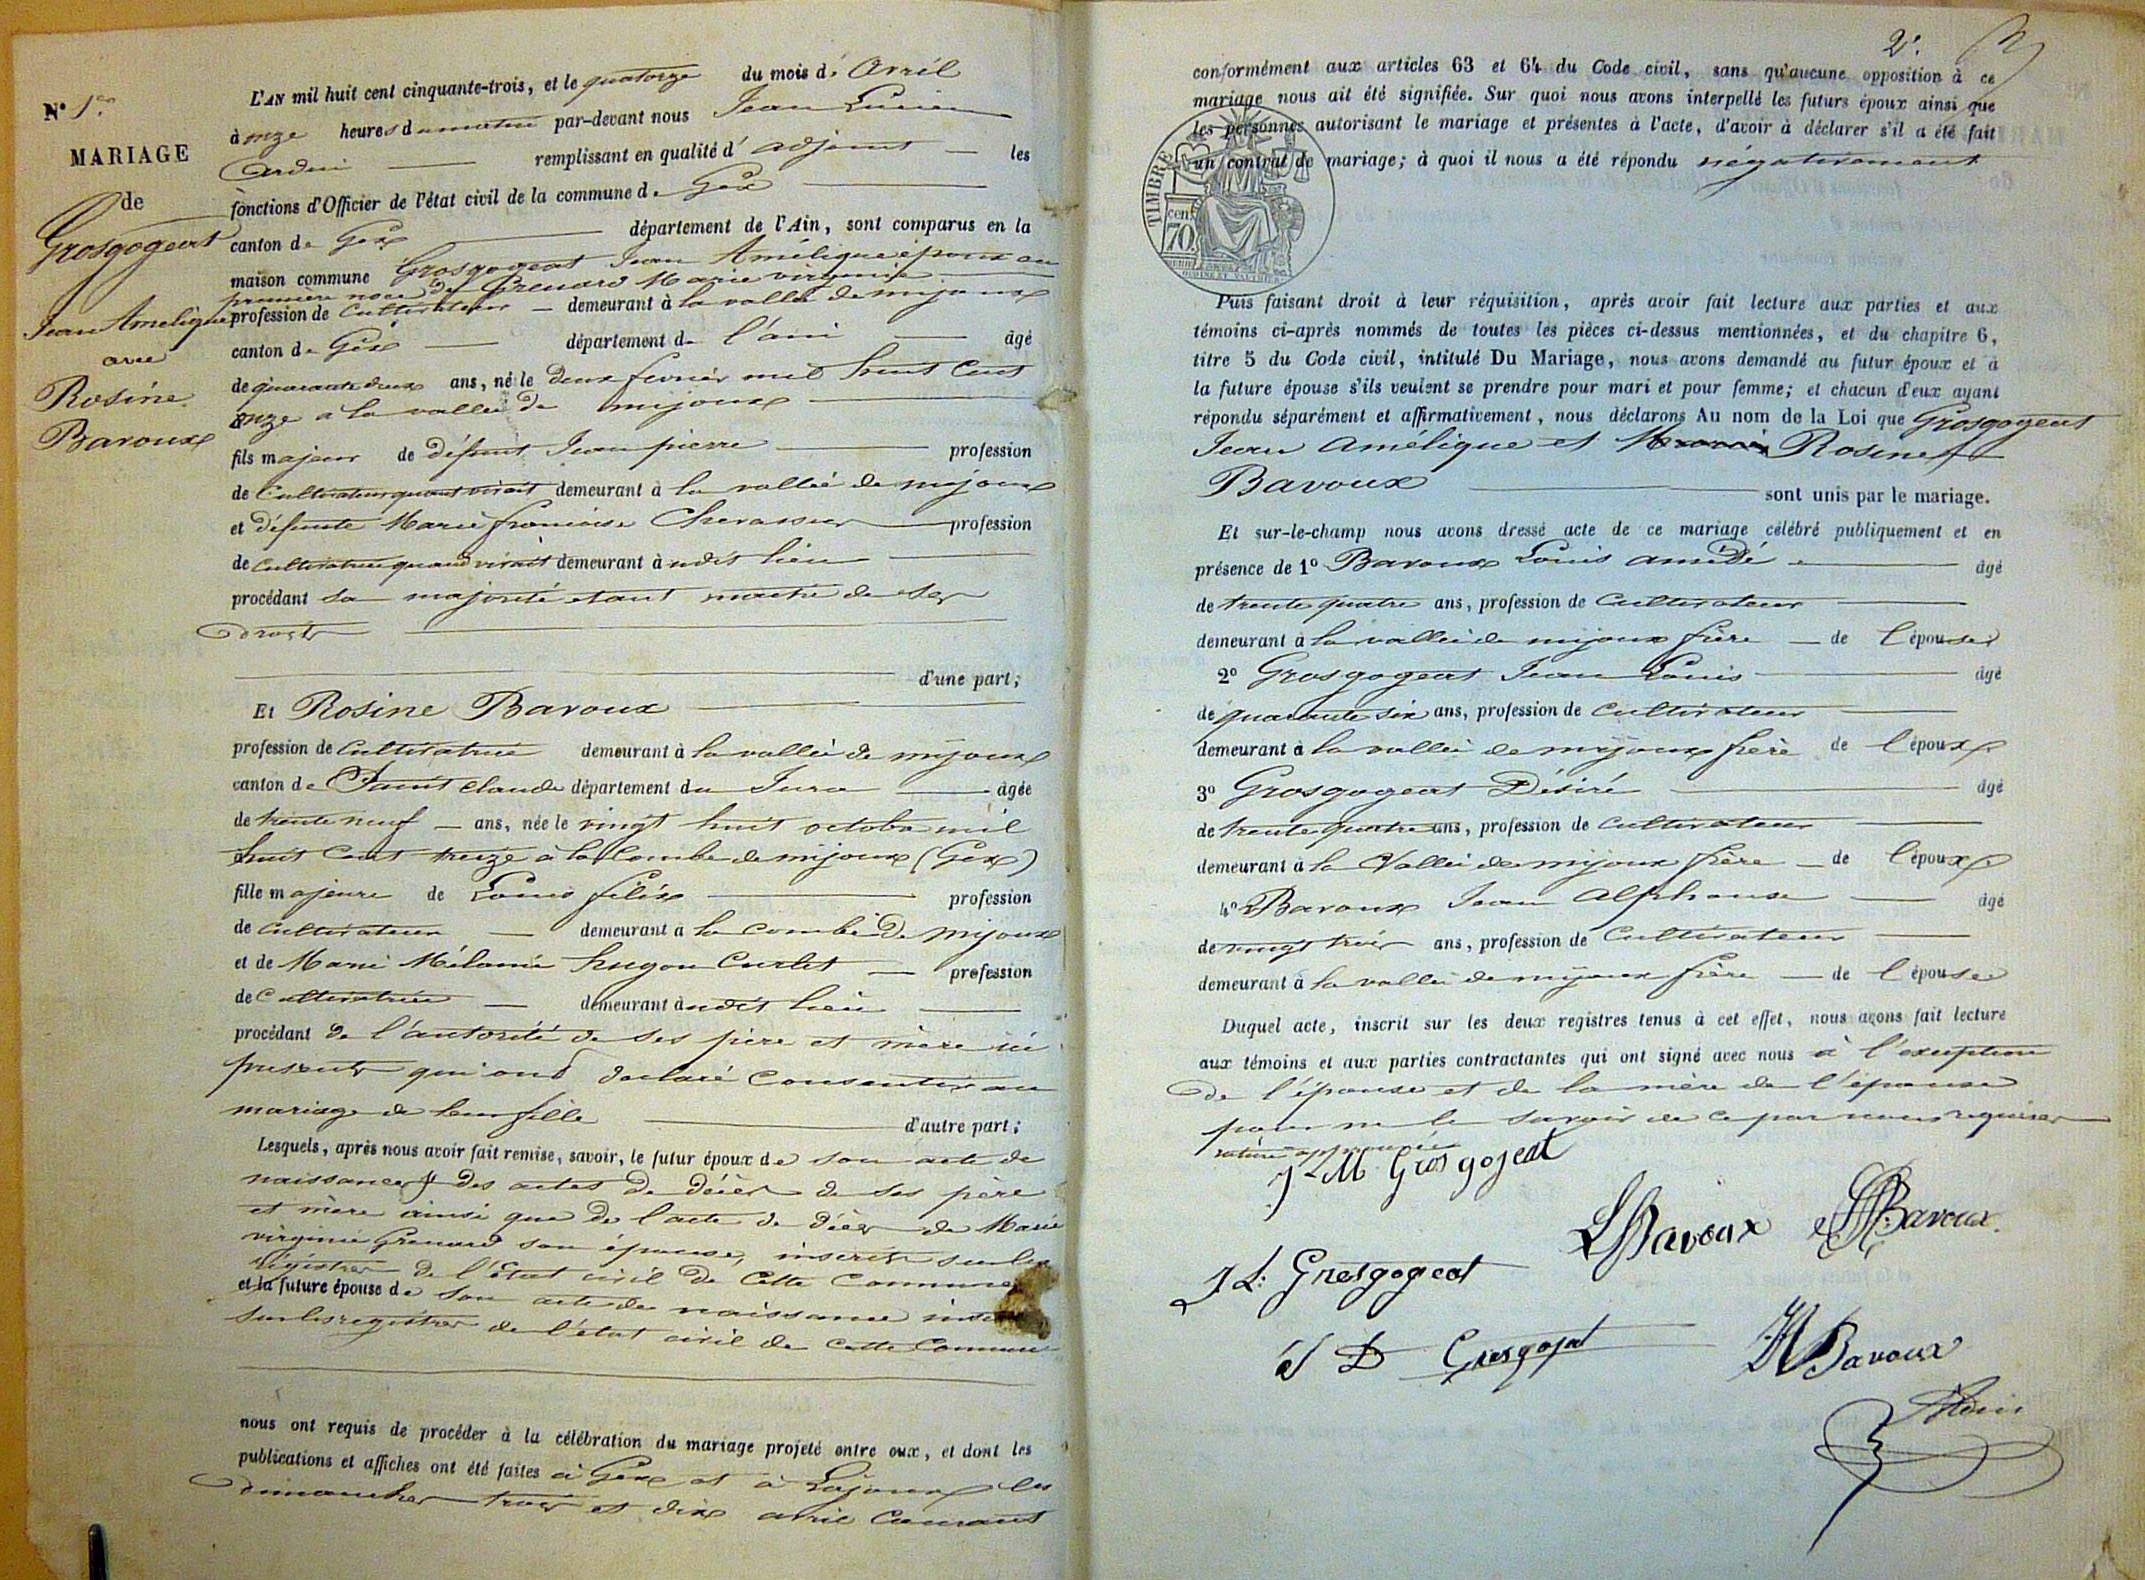 N° 1er
MARIAGE
de
Grosgogeat
Jean Amelique
avec
Rosine
Bavoux
L'AN mil huit cent cinquante-trois, et le quatorze du mois d'Avril
à onze heures du matin par-devant nous Jean
remplissant en qualité d'adjoint les
fonctions d'Officier de l'état civil de la commune de Gex
canton de Gex département de l'Ain, sont comparus en la
maison commune Grosgogeat Jean Amélique époux en
première noce de Grenard Marie virginie
profession de Cultivateur demeurant à la vallée de mijoux
canton de Gex département de l'ain âgé
de quarante deux ans, né le deux fevrier mil huit Cent
onze à la vallée de mijoux
fils majeur de défunt Jean pierre profession
de Cultivateur quant vivait demeurant à la vallée de mijoux
et défunte Marie françoise Chevassus profession
de cultivatrice quand vivait demeurant à udit lieu
procédant sa majorité étant maitre de ses
droits
d'une part;
Et Rosine Bavoux
profession de Cultivatrice demeurant à la vallée de mijoux
canton de Saint Claude département du Jura âgée
de trente neuf ans, née le vingt huit octobre mil
huit Cent treize à la Combe de mijoux (Gex)
fille majeure de Louis félix profession
de Cultivateur demeurant à la combe de mijoux
et de Marie Mélanie hugon Curlet profession
de Cultivatrice demeurant à udit lieu
procédant de l'autorité de ses père et mère ici
présents qui ont déclaré Consentir au
mariage de leur fille d'autre part;
Lesquels, après nous avoir fait remise, savoir, le futur époux de son acte de
naissance des actes de décès de ses père
et mère ainsi que de l'acte de décès de Marie
virginie Grenard son épouse, inscrits sur les
régistres de l'état civil de Cette Commune
et la future épouse de son acte de naissance
sur les registres de l'état civil de Cette Commune
nous ont requis de procéder à la célébration du mariage projeté entre eux, et dont les
publications et affiches ont été faites à Gex et à Lajoux les
dimanches trois et dix avril Courant
2e.
conformément aux articles 63 et 64 du Code civil, sans qu'aucune opposition à ce
mariage nous ait été signifiée. Sur quoi nous avons interpellé les futurs époux ainsi que
les personnes autorisant le mariage et présentes à l'acte, d'avoir à déclarer s'il a été fait
un contrat de mariage; à quoi il nous a été répondu négativement
TIMBRE
cent
70
Puis faisant droit à leur réquisition, après avoir fait lecture aux parties et aux
témoins ci-après nommés de toutes les pièces ci-dessus mentionnées, et du chapitre 6,
titre 5 du Code civil, intitulé Du Mariage, nous avons demandé au futur époux et à
la future épouse s'ils veulent se prendre pour mari et pour femme; et chacun d'eux ayant
répondu séparément et affirmativement, nous déclarons Au nom de la Loi que Grosgogeat
Jean Amélique et Rosine
Bavoux sont unis par le mariage.
Et sur-le-champ nous avons dressé acte de ce mariage célébré publiquement et en
présence de 1° Bavoux Louis amédé âgé
de trente quatre ans, profession de Cultivateur
demeurant à la vallée de mijoux frère de l'épouse
2° Grosgogeat Jean Louis âgé
de quarante six ans, profession de Cultivateur
demeurant à la vallée de mijoux frère de l'époux
3° Grosgogeat Désiré âgé
de trente quatre ans, profession de Cultivateur
demeurant à la Vallée de mijoux frère de l'époux
4° Bavoux Jean Alphonse âgé
de vingt trois ans, profession de Cultivateur
demeurant à la vallée de mijoux frère de l'épouse
Duquel acte, inscrit sur les deux registres tenus à cet effet, nous avons fait lecture
aux témoins et aux parties contractantes qui ont signé avec nous à l'exeption
de l'épouse et de la mère de l'épouse
pour ne le savoir de ce par nous requises
rature approuvée
J-M Grosgojeat
LBavoux Bavoux
J L: Grosgogeat
D Grosgojat Bavoux